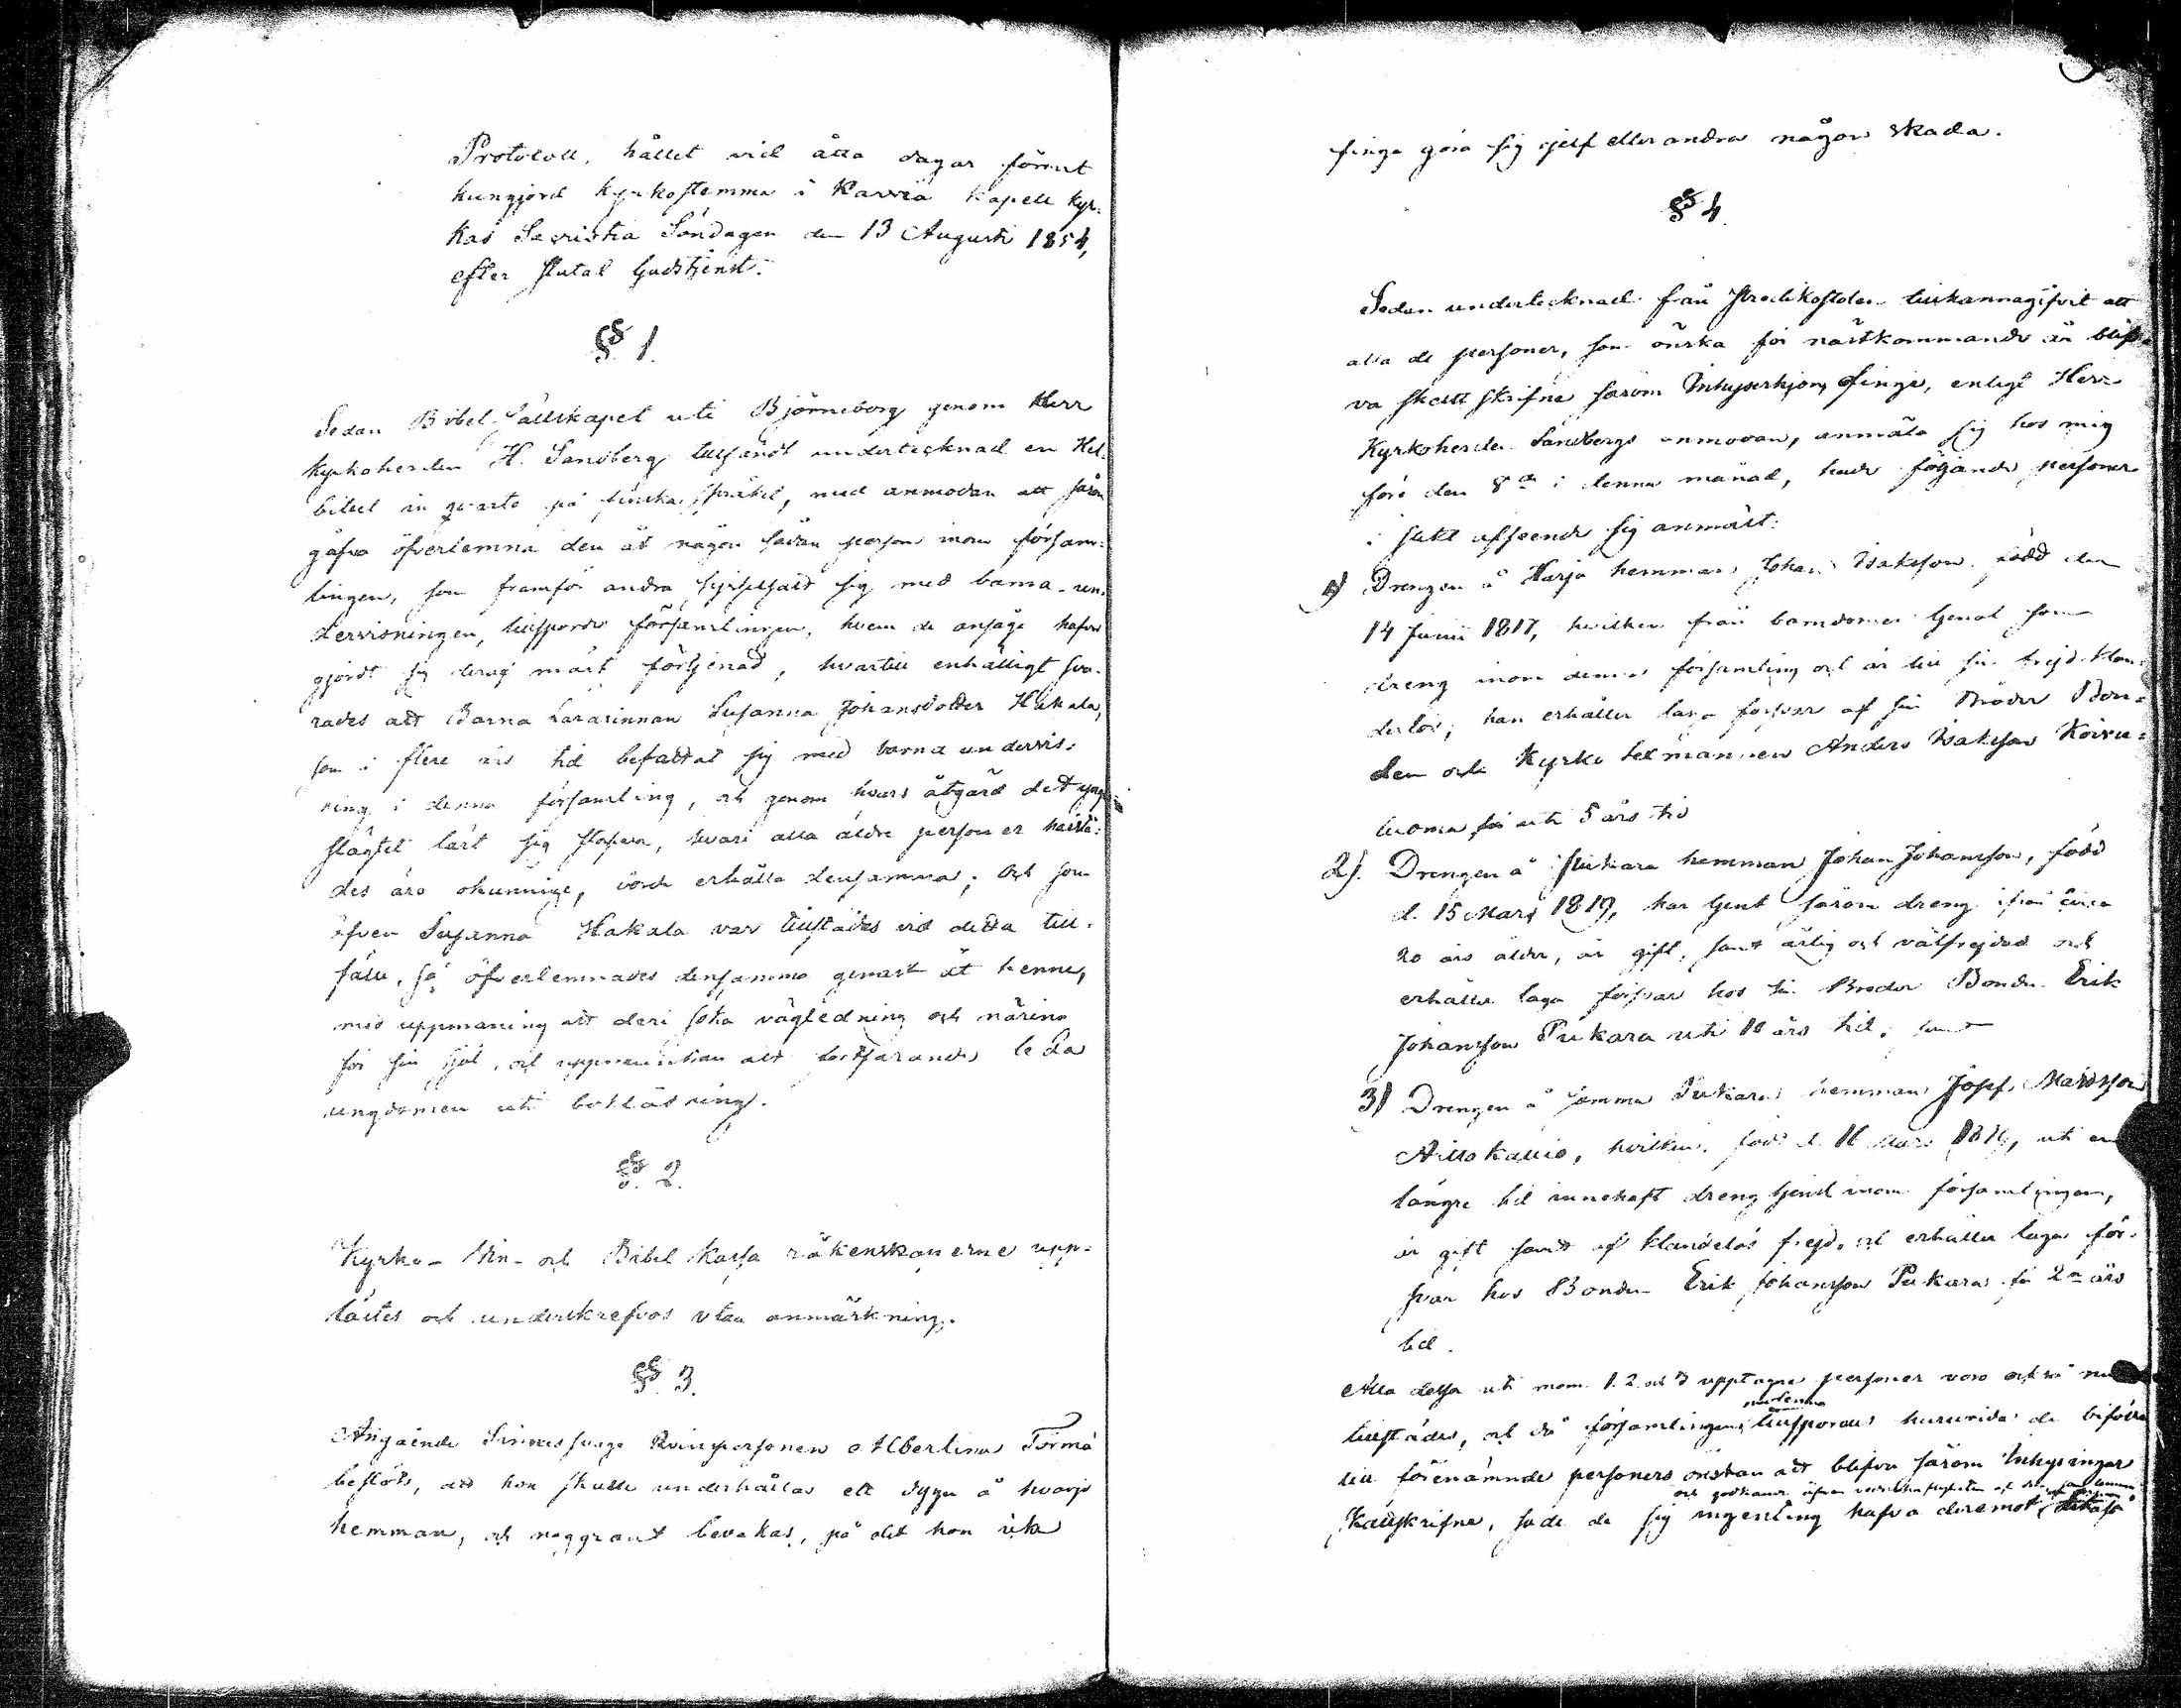 Protocoll, hållet vid åtta dagar förrut
kungjord kyrkostemma i Karvia Kapell kyr-
kas Sacristia Söndagen den 13 Augusti 1854,
efter slutad Gudstjenst.
§ 1.
Sedan Bibel-Sällskapet uti Björneborg genom Herr
Kyrkoherden H. Sandberg tillsändt undertecknad en Hel-
bibel in quarto på finska språket, med anmodan att såsom
gåfva öfverlemna den åt någon sådan person inom försam-
lingen, som framför andra sysselsatt sig med barna-un-
dervisningen, tillspordes församlingen, hvem de ansågo hafva
gjordt sig deraf mäst förtjenad, hvartill enhälligt sva-
rades att Barna Lärarinnan Susanna Johansdotter Hakala,
som i flere års tid befattat sig med barna undervis-
ning i denna församling, och genom hvars åtgärd det yngre
slägtet lärt sig stafva, hvari alla äldre personer
des äro okunnige, borde erhålla densamma; Och som
äfven Susanna Hakala var tillstädes vid detta till-
fälle, så öfverlemnades densamma genast åt henne,
med uppmaning att deri söka vägledning och näring
för sin själ, och uppmuntran att fortfarande leda
ungdomen uti bokläsning.
§. 2.
Kyrko- Vin- och Bibel Kassa räkenskaperne upp-
lästes och underskrefvos utan anmärkning.
§ 3.
Angående Sinnessvaga Qvinspersonen Albertina Törmä
beslöts, att hon skulle underhållas ett dygn å hvarje
hemman, och noggrant bevakas, på det hon icke
finge göra sig sjelf eller andra någon skada.
§ 4.
Sedan undertecknad från Predikostolen tillkännagifvit att
alla de personer, som önska för nästkommande år blif-
va skattskrifne såsom Inhyseshjon finge, enligt Herr
Kyrkoherden Sandbergs anmodan, anmäla sig hos mig
före den 8de i denna månad, hade följande personer
i slikt afseende sig anmält:
1) Drengen å Harja hemman Johan Isaksson född den
14 Junii 1817, hvilken från barndomen tjenat som
dreng inom denna församling och är till sin frejd klan-
derlös; han erhåller laga försvar af sin Broder Bon-
den och Kyrko Sexmannen Anders Isaksson Koivu-
luoma för uti 5 års tid
2). Drengen å Pukara hemman Johan Johansson, född
d. 15 Mars 1819, har tjent såsom dreng ifrån circa
20 års ålder, är gift, samt ärlig och välfrejdad och
erhåller laga försvar hos sin Broder Bonden Erik
Johansson Pukara uti 10 års tid; samt
3) Drengen å samma Pukara hemman Josef Mattsson
Aittokallio, hvilken, född d. 16 Mars, uti en
längre tid innehaft dreng tjenst inom församlingen,
är gift samt af klanderlös frejd, och erhåller laga för-
svar hos Bonden Erik Johansson Pukara för 2ne års
tid.
Alla dessa uti mom. 1. 2. och 3 upptagne personer voro också nu
tillstädes, och då församlingens tillspordes huruvida de biföllo
till förenämnde personers önskan att blifva såsom Inhysingar
Skattskrifne, sade de sig ingenting hafva deremot